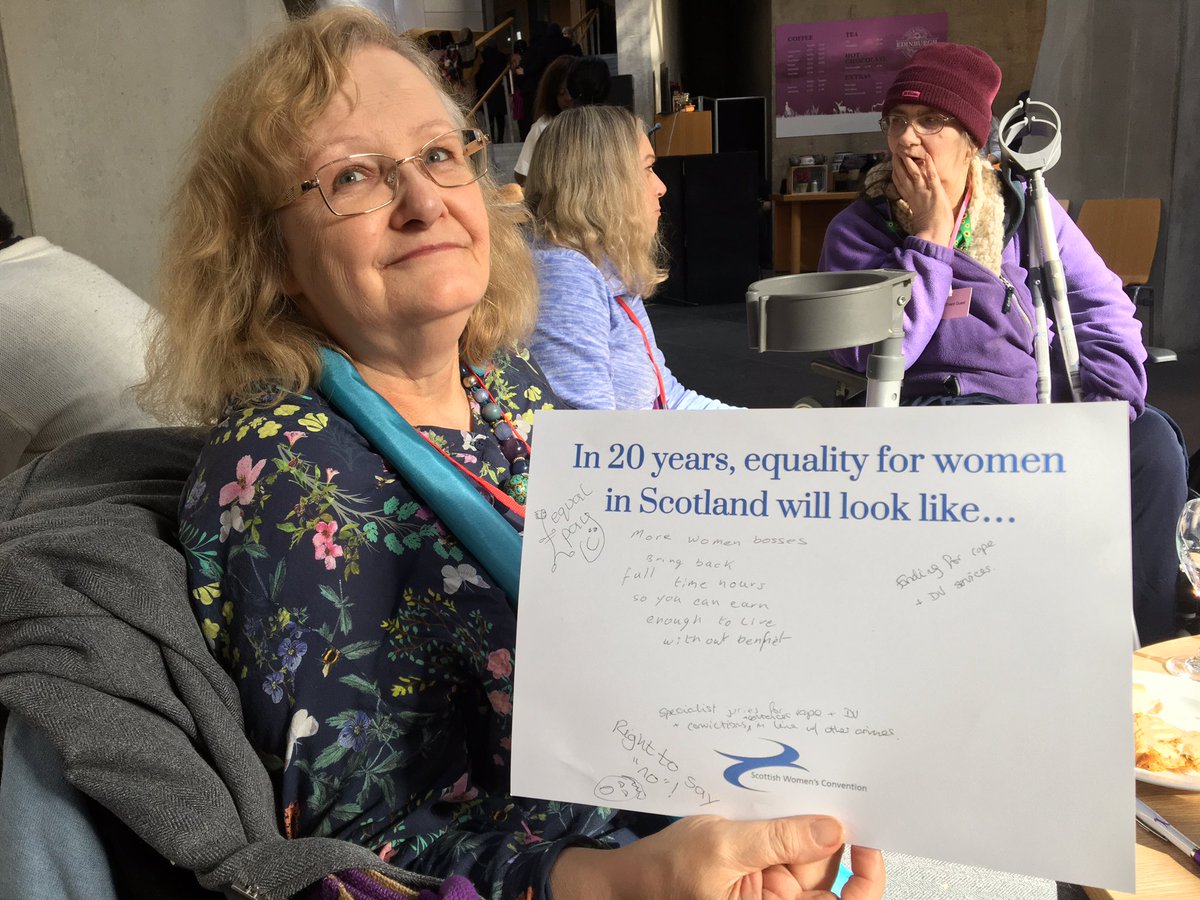 COFFEE
TEA
HOT
CHOCOLATE
EXTRAS
EDINBURGH
In 20 years, equality for women
in Scotland will look like…
equal
pay
More women bosses
Bring back
full time hours
so you can earn
enough to live
without benfiet
funding for rape
+ DV services.
Specialist juries for rape + DV
+ convictions, in line w/ other crimes.
Right to say
"no"!
Scottish Women's Convention
Guest